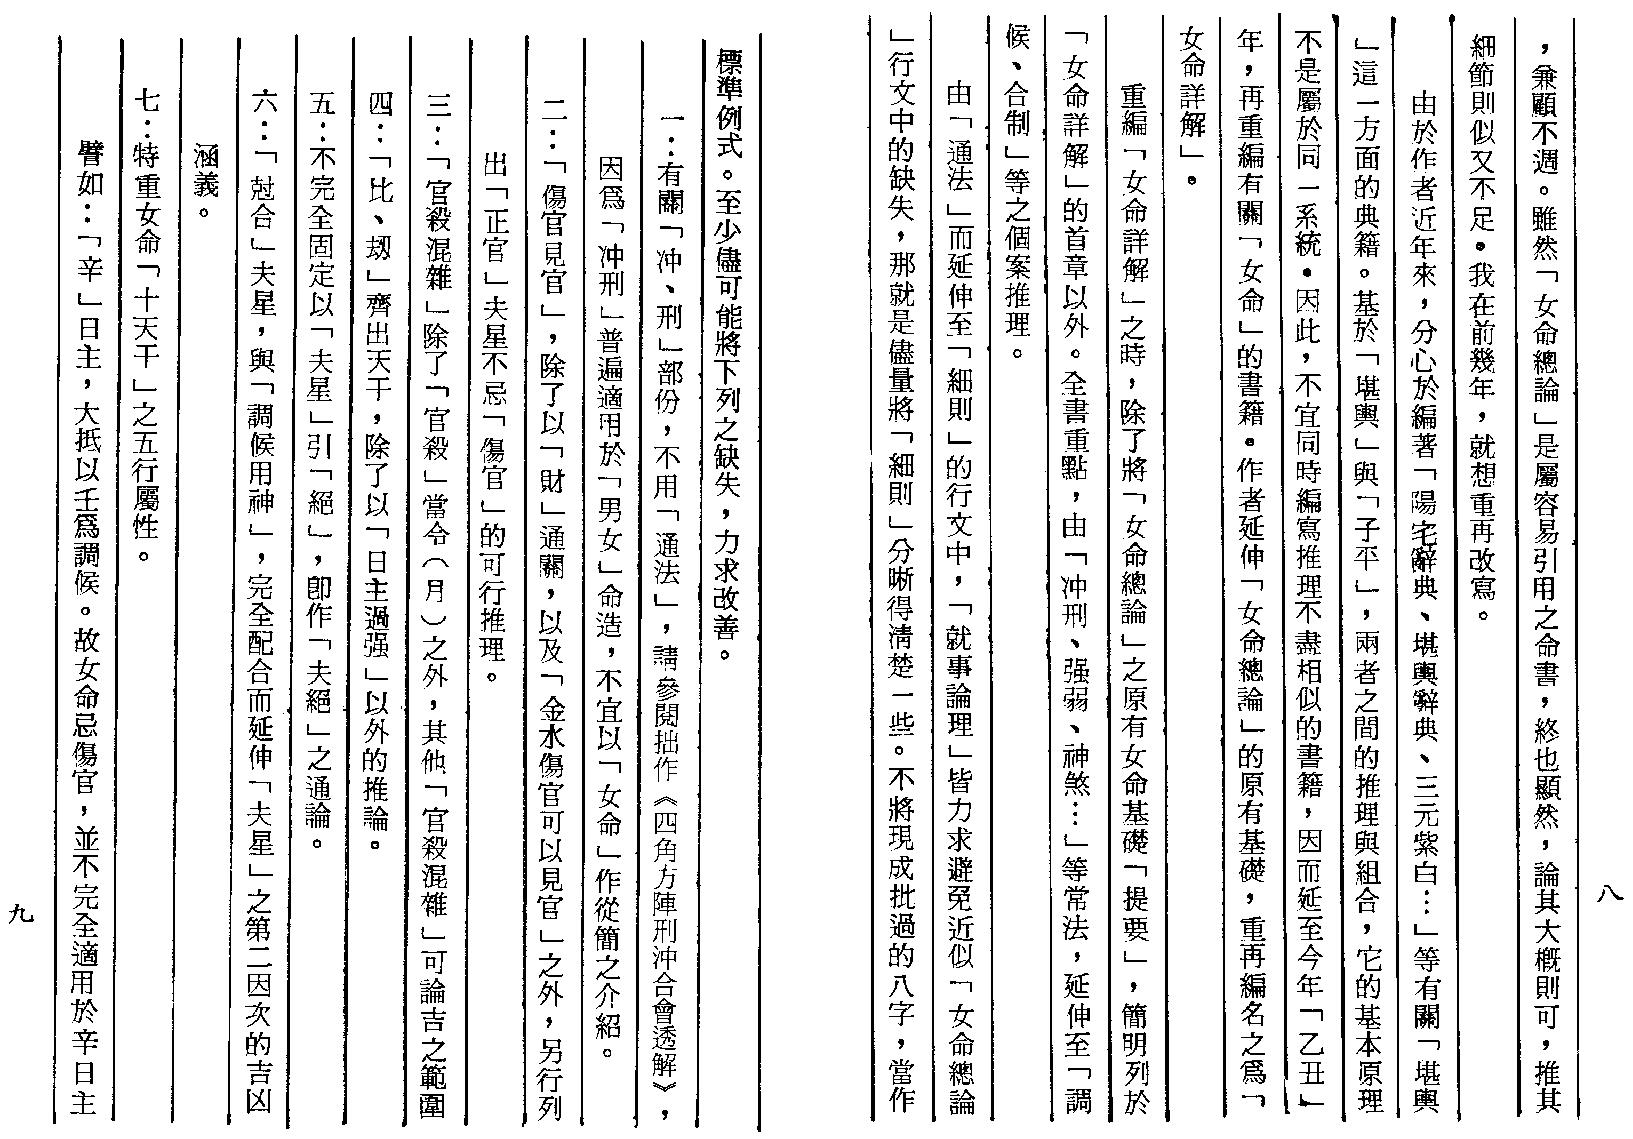 ，兼顧不週。雖然「女命總論」是屬容易引用之命書，終也顯然，論其大概則可，推其
細節則似又不足。我在前幾年，就想重再改寫。
由於作者近年來，分心於編著「陽宅辭典、堪輿辭典、三元紫白…」等有關「堪輿
」這一方面的典籍。基於「堪輿」與「子平」，兩者之間的推理與組合，它的基本原理
不是屬於同一系統。因此，不宜同時編寫推理不盡相似的書籍，因而延至今年「乙丑」
年，再重編有關「女命」的書籍。作者延伸「女命總論」的原有基礎，重再編名之爲「
女命詳解」。
重編「女命詳解」之時，除了將「女命總論」之原有女命基礎「提要」，簡明列於
「女命詳解」的首章以外。全書重點，由「冲刑、强弱、神煞…」等常法，延伸至「調
候、合制」等之個案推理。
由「通法」而延伸至「細則」的行文中，「就事論理」皆力求避免近似「女命總論
」行文中的缺失，那就是儘量將「細則」分晰得淸楚一些。不將現成批過的八字，當作
八
標準例式。至少儘可能將下列之缺失，力求改善。
一：有關「冲、刑」部份，不用「通法」，請參閱拙作《四角方陣刑沖合會透解》，
因爲「冲刑」普遍適用於「男女」命造，不宜以「女命」作從簡之介紹。
二：「傷官見官」，除了以「財」通關，以及「金水傷官可以見官」之外，另行列
出「正官」夫星不忌「傷官」的可行推理。
三：「官殺混雜」除了「官殺」當令（月）之外，其他「官殺混雜」可論吉之範圍
四：「比、刼」齊出天干，除了以「日主過强」以外的推論。
五：不完全固定以「夫星」引「絕」，卽作「夫絕」之通論。
六：「尅合」夫星，與「調候用神」，完全配合而延伸「夫星」之第二因次的吉凶
涵義。
七：特重女命「十天干」之五行屬性。
譬如：「辛」日主，大抵以壬爲調候。故女命忌傷官，並不完全適用於辛日主
九